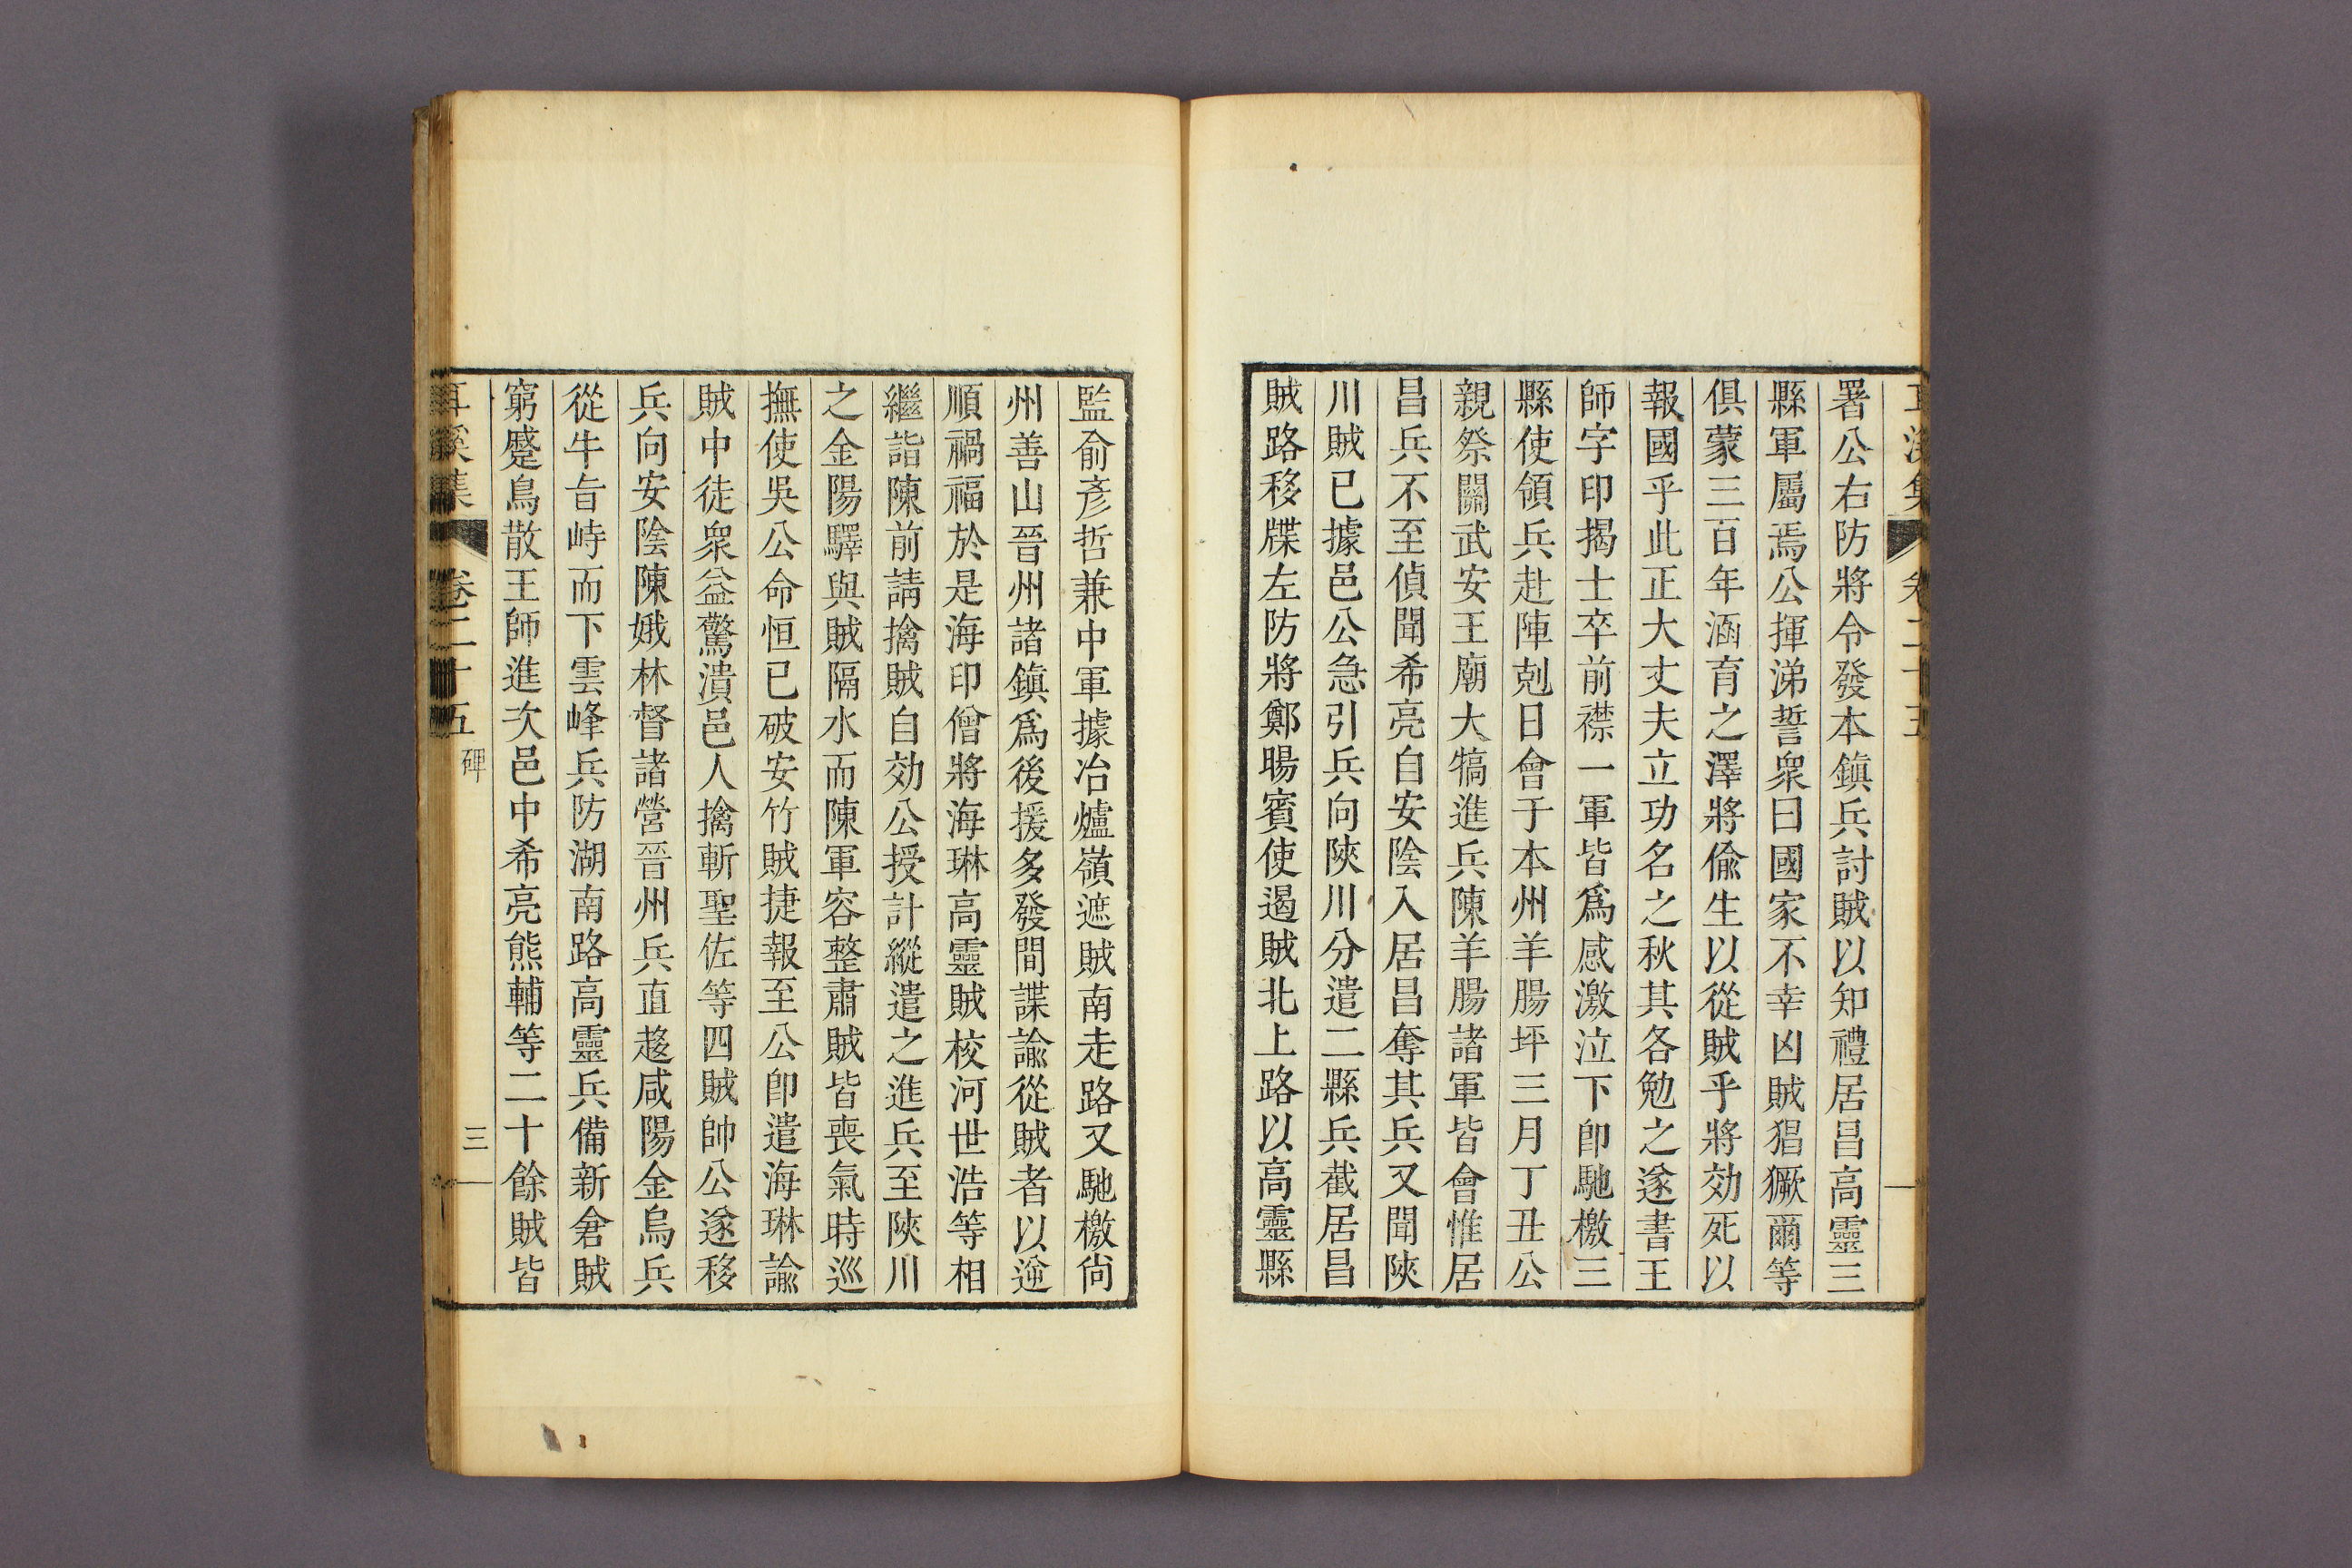 耳溪集 卷二十五
署公右防將令發本鎮兵討賊以知禮居昌高靈三
縣軍屬焉公揮涕誓衆曰國家不幸凶賊猖獗爾等
俱蒙三百年涵育之澤將偸生以從賊乎將効死以
報國乎此正大丈夫立功名之秋其各勉之遂書王
師字印揭士卒前襟一軍皆爲感激泣下卽馳檄三
縣使領兵赴陣剋日會于本州羊腸坪三月丁丑公
親祭關武安王廟大犒進兵陳羊腸諸軍皆會惟居
昌兵不至偵聞希亮自安陰入居昌奪其兵又聞陜
川賊已據邑公急引兵向陜川分遣二縣兵截居昌
賊路移牒左防將鄭暘賓使遏賊北上路以高靈縣
監俞彥哲兼中軍據冶爐嶺遮賊南走路又馳檄尙
州善山晉州諸鎮爲後援多發間諜諭從賊者以逆
順禍福於是海印僧將海琳高靈賊校河世浩等相
繼詣陳前請擒賊自効公授計縱遣之進兵至陜川
之金陽驛與賊隔水而陳軍容整肅賊皆喪氣時巡
撫使吳公命恒已破安竹賊捷報至公卽遣海琳諭
賊中徒衆益驚潰邑人擒斬聖佐等四賊帥公遂移
兵向安陰陳娥林督諸營晉州兵直趍咸陽金烏兵
從牛旨峙而下雲峰兵防湖南路高靈兵備新倉賊
窮蹙鳥散王師進次邑中希亮熊輔等二十餘賊皆
耳溪集 卷二十五 碑 三